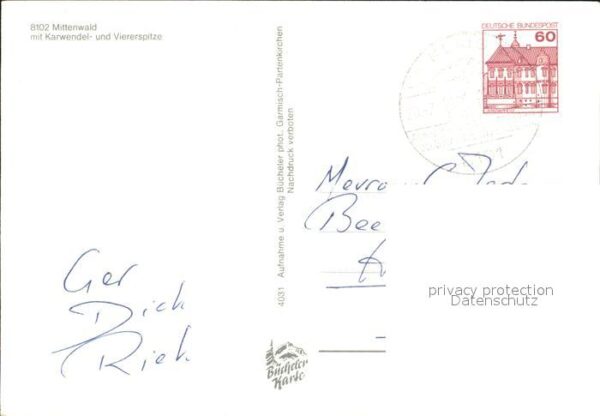 8102 Mittenwald
mit Karwendel- und Viererspitze
DEUTSCHE BUNDESPOST
60
4031 Aufnahme u. Verlag Bücheler phot. Garmisch-Partenkirchen
Nachdruck verboten
Ger
Dick
Riek.
privacy protection
Datenschutz
Bücheler
Karte